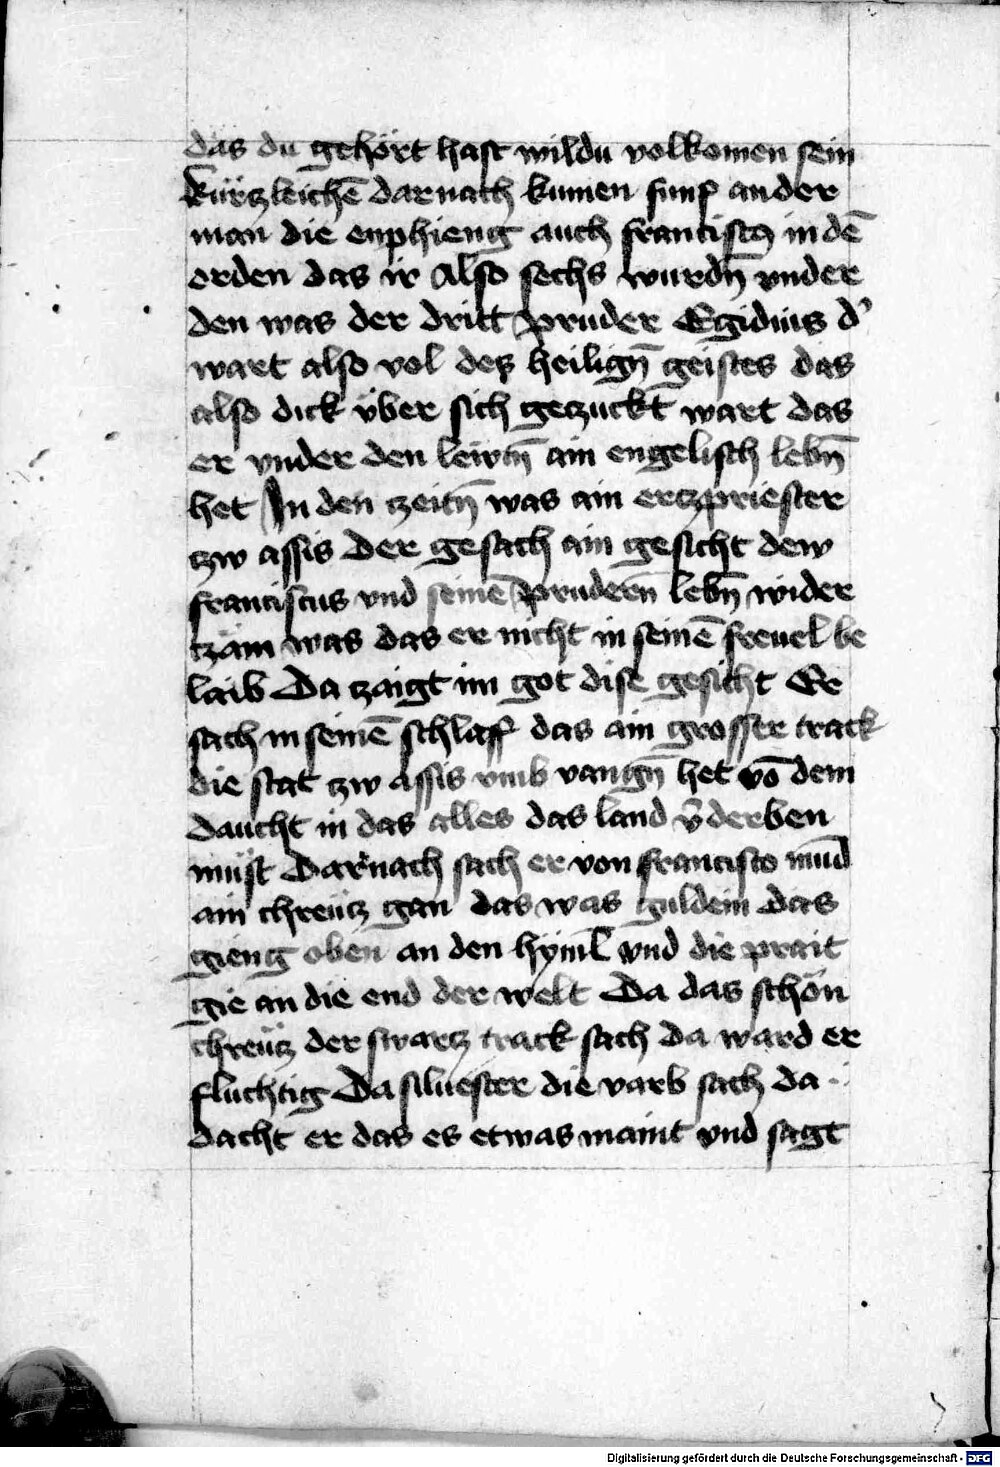 das du gehört hast wildu volkomen sein
kürtzleichē darnach kumen fimf ander
man die enphieng auch francisco in dē
orden das ir Also sechs wurdn̄ vnder
den was der dritt pruder Egidius d'
wart also vol des heilign̄ geistes das
also dick vͤber sich geczuckt wart das
er vnder den lewtn̄ ain engelisch lebn̄
het In den zeitn̄ was ain ertzpriester
tzw assis Der gesach ain gesicht dew
franciscus vnd seinē prudern̄ lebn̄ wider
tzäm was das er nicht in seinē freuel be
laib Da tzaigt im got dise gesicht Er
sach in seinē schlaff das ain grosser track
die stat tzw assis vmb vangn̄ het vō dem
daucht in das alles das land v̄derben
müst Darnach sach er von francisco mūd
ain chreütz gan das was guldein das
gieng oben an den hyml̄ vnd die prait
gie an die end der welt Da das schön
chreütz der swartz track sach da ward er
fluchtig Da siluester die varb sach da
dacht er das es etwas maint vnd sagt
Digitalisierung gefördert durch die Deutsche Forschungsgemeinschaft - DFG